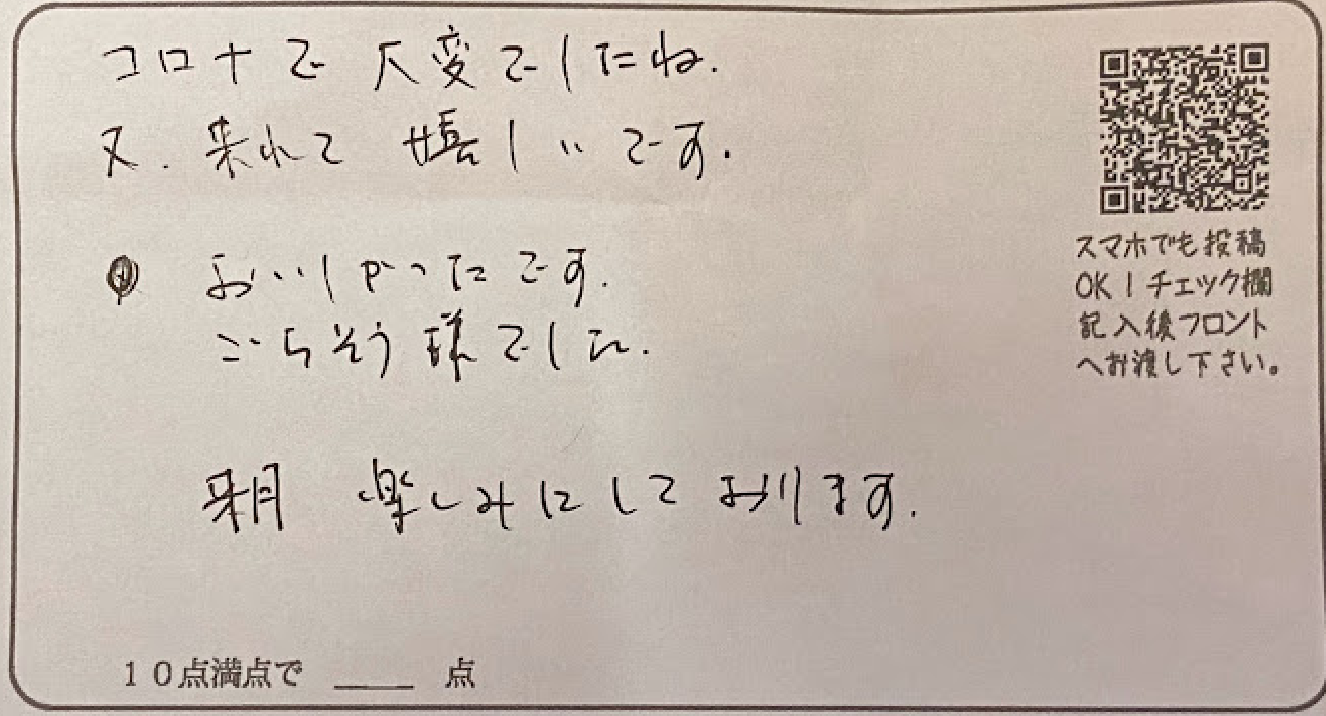 コロナで大変でしたね.
又.来れて嬉しいです.
おいしかったです.
ごちそう様でした.
来月 楽しみにしております.
スマホでも投稿
OK!チェック欄
記入後フロント
へお渡し下さい。
10点満点で ____ 点